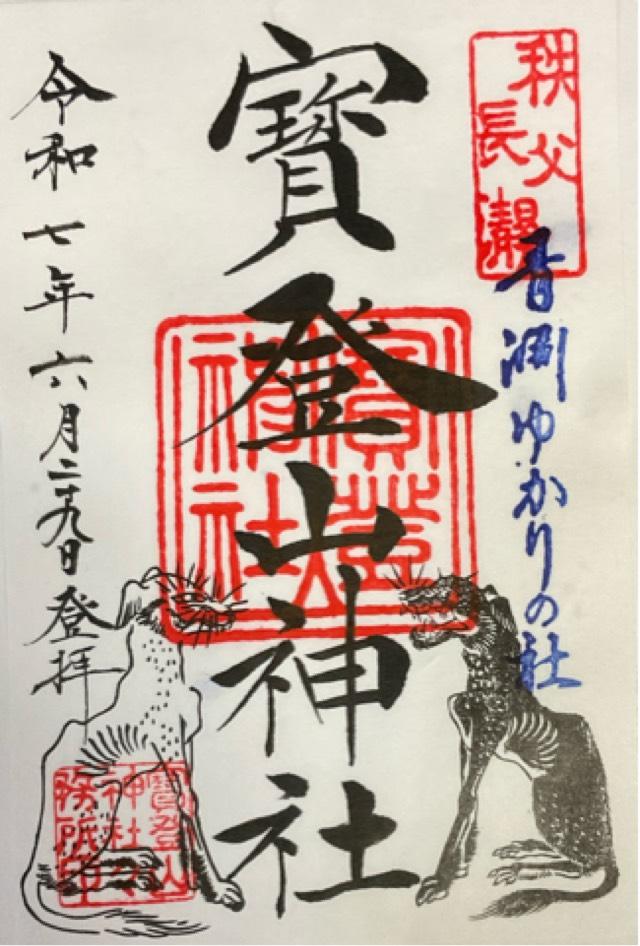 秩父
長瀞
青渕ゆかりの社
寶登山神社
寶登山
神社
令和七年六月二十九日登拝
寶登山
神社々
務所印